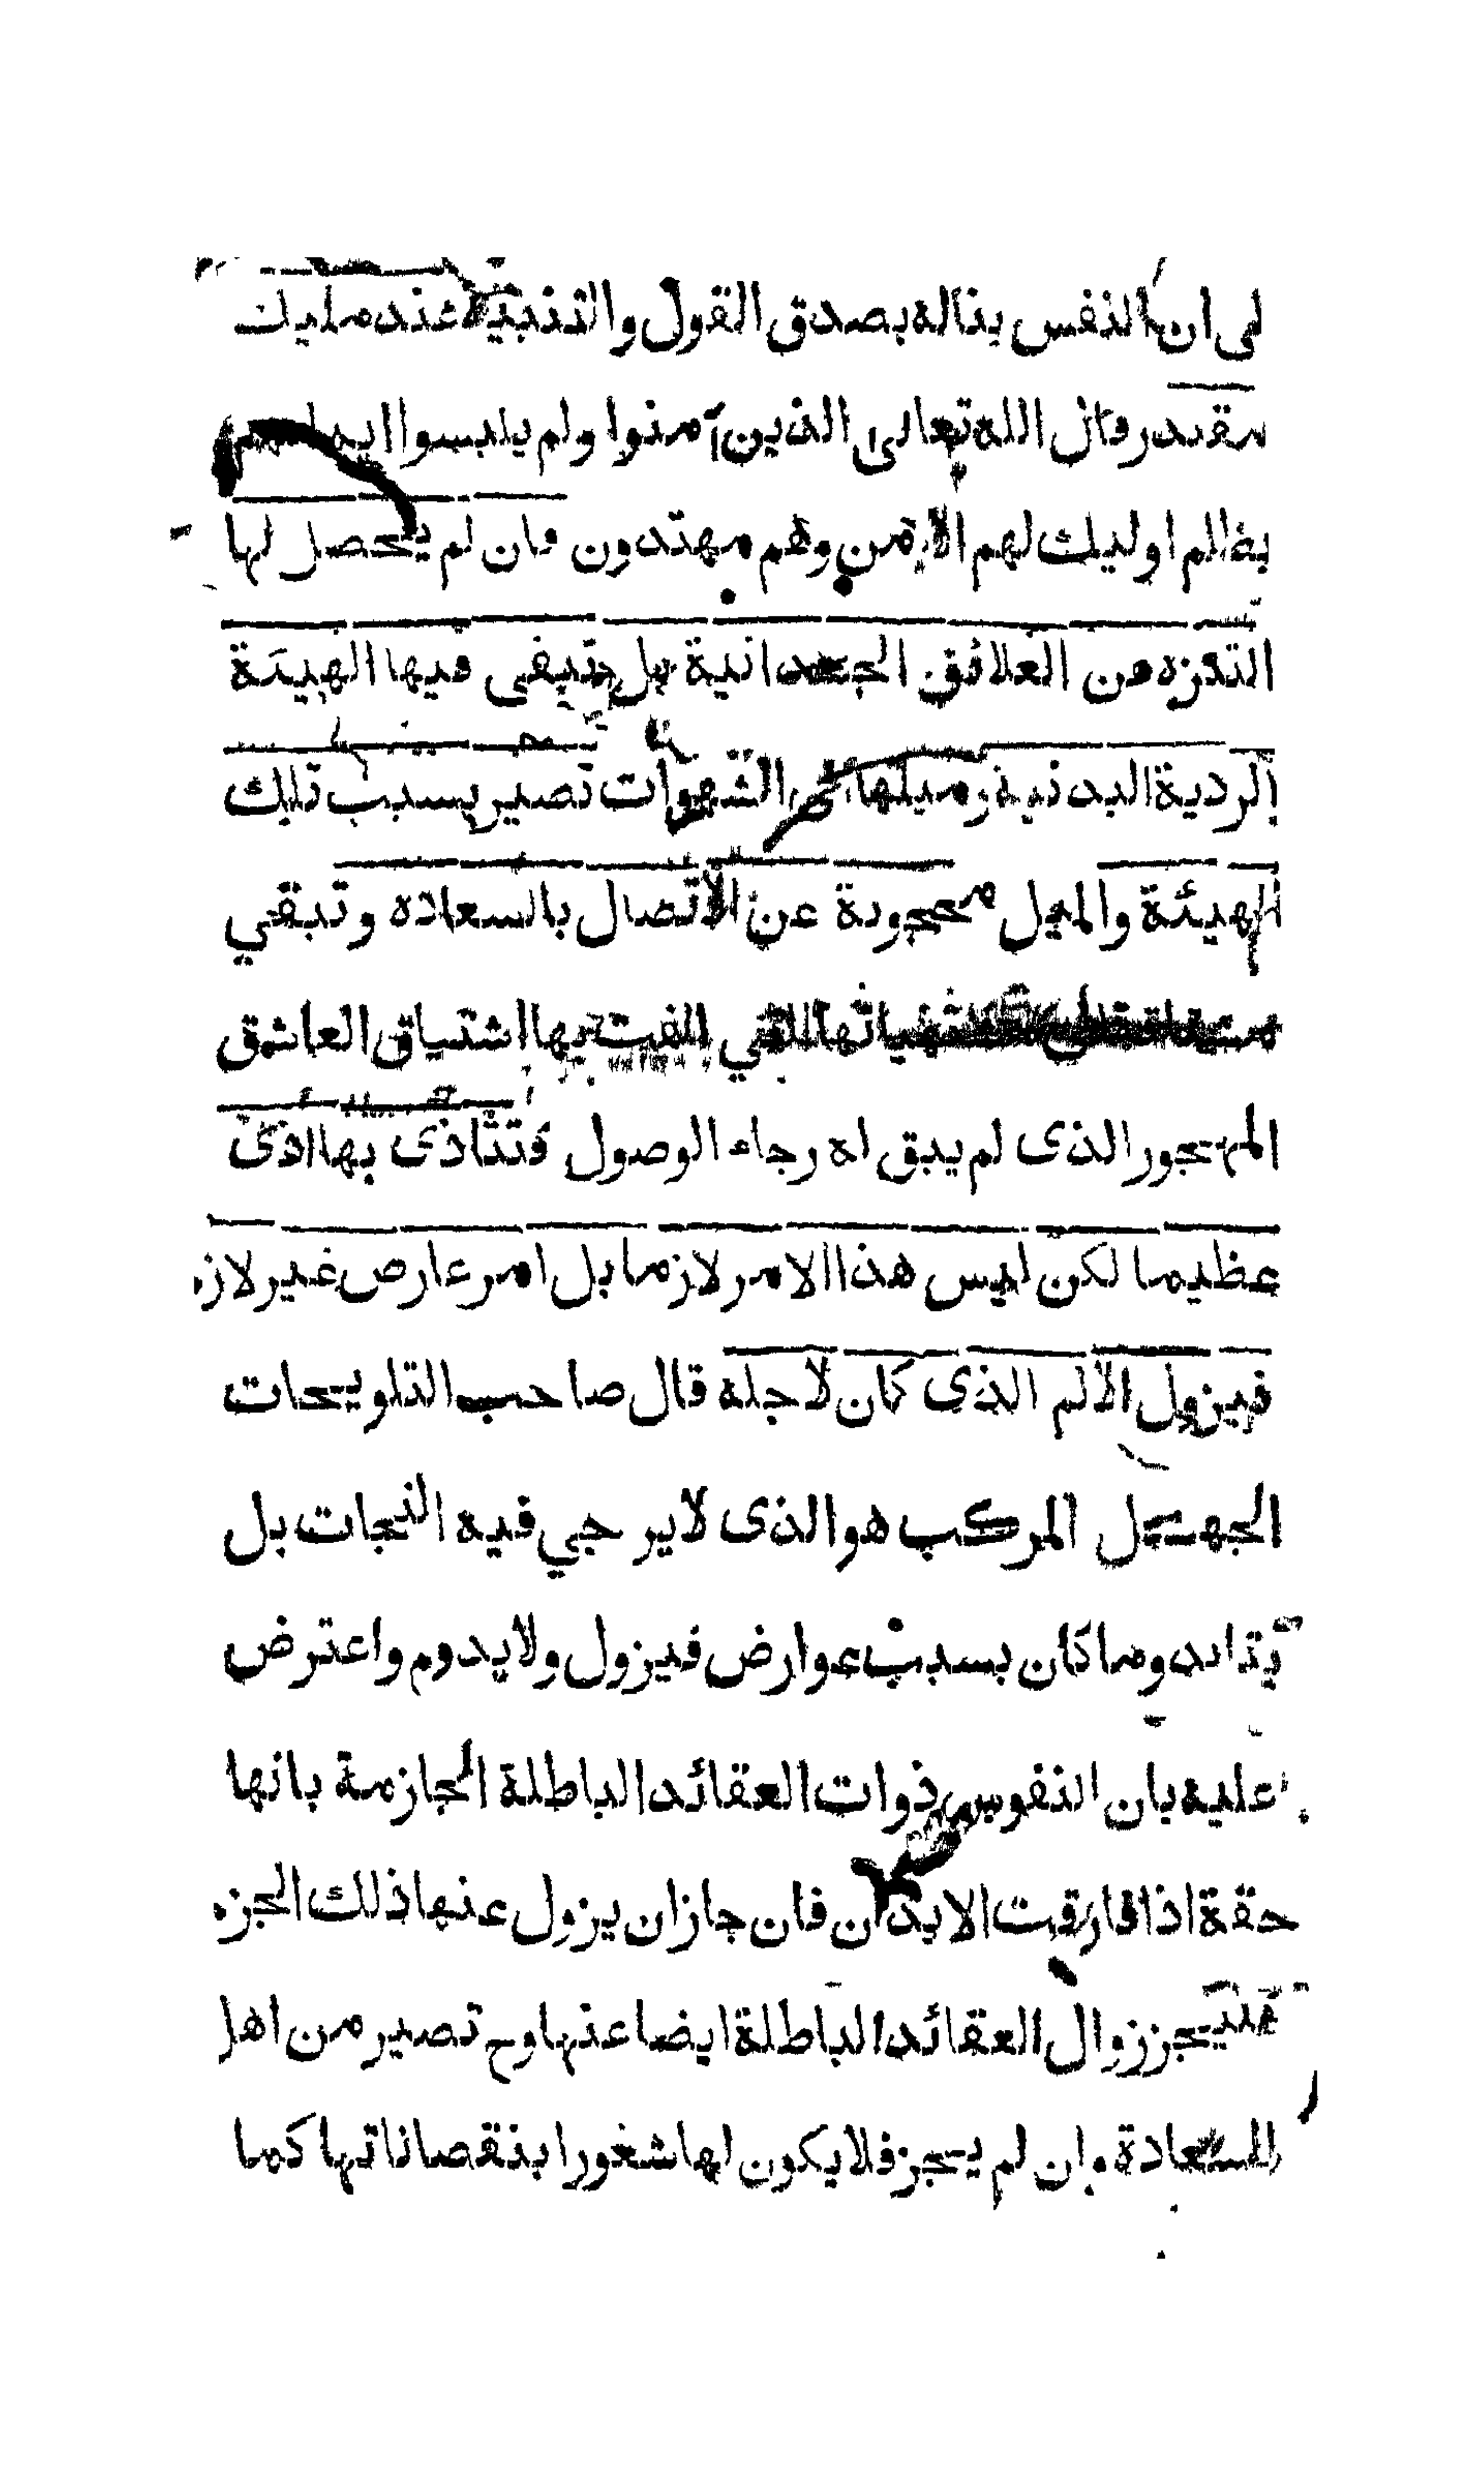 لى ان النفس يناله بصدق القول والتنبيه عند مليك
مقتدر وقال الله تعالى الذين آمنوا ولم يلبسوا ايمانهم
بظلم اوليك لهم الامن وهم مهتدون فان لم يحصل لها
التنزه من العلائق الجسدانية بل تبقى فيها الهيئة
الردية البدنية وميلها الى الشهوات تصير بسبب تلك
الهيئة والميل محجوبة عن الاتصال بالسعادة وتبقي
مشتهياتها التي الفت بها اشتياق العاشق
المهجور الذى لم يبق له رجاء الوصول فتتاذى بها اذى
عظيما لكن ليس هذا الامر لازما بل امر عارض غير لازم
فيزول الالم الذى كان لاجله قال صاحب التلويحات
الجهل المركب هو الذى لا يرجي فيه النجات بل
يتابد وما كان بسبب عوارض فيزول ولا يدوم واعترض
عليه بان النفوس ذوات العقائد الباطلة الجازمة بانها
حقة اذا فارقت الابدان فان جاز ان يزول عنها ذلك الجزم
فليجز زوال العقائد الباطلة ايضا عنها وح تصير من اهل
السعادة وان لم يجز فلا يكون لها شغورا بنقصاناتها كما